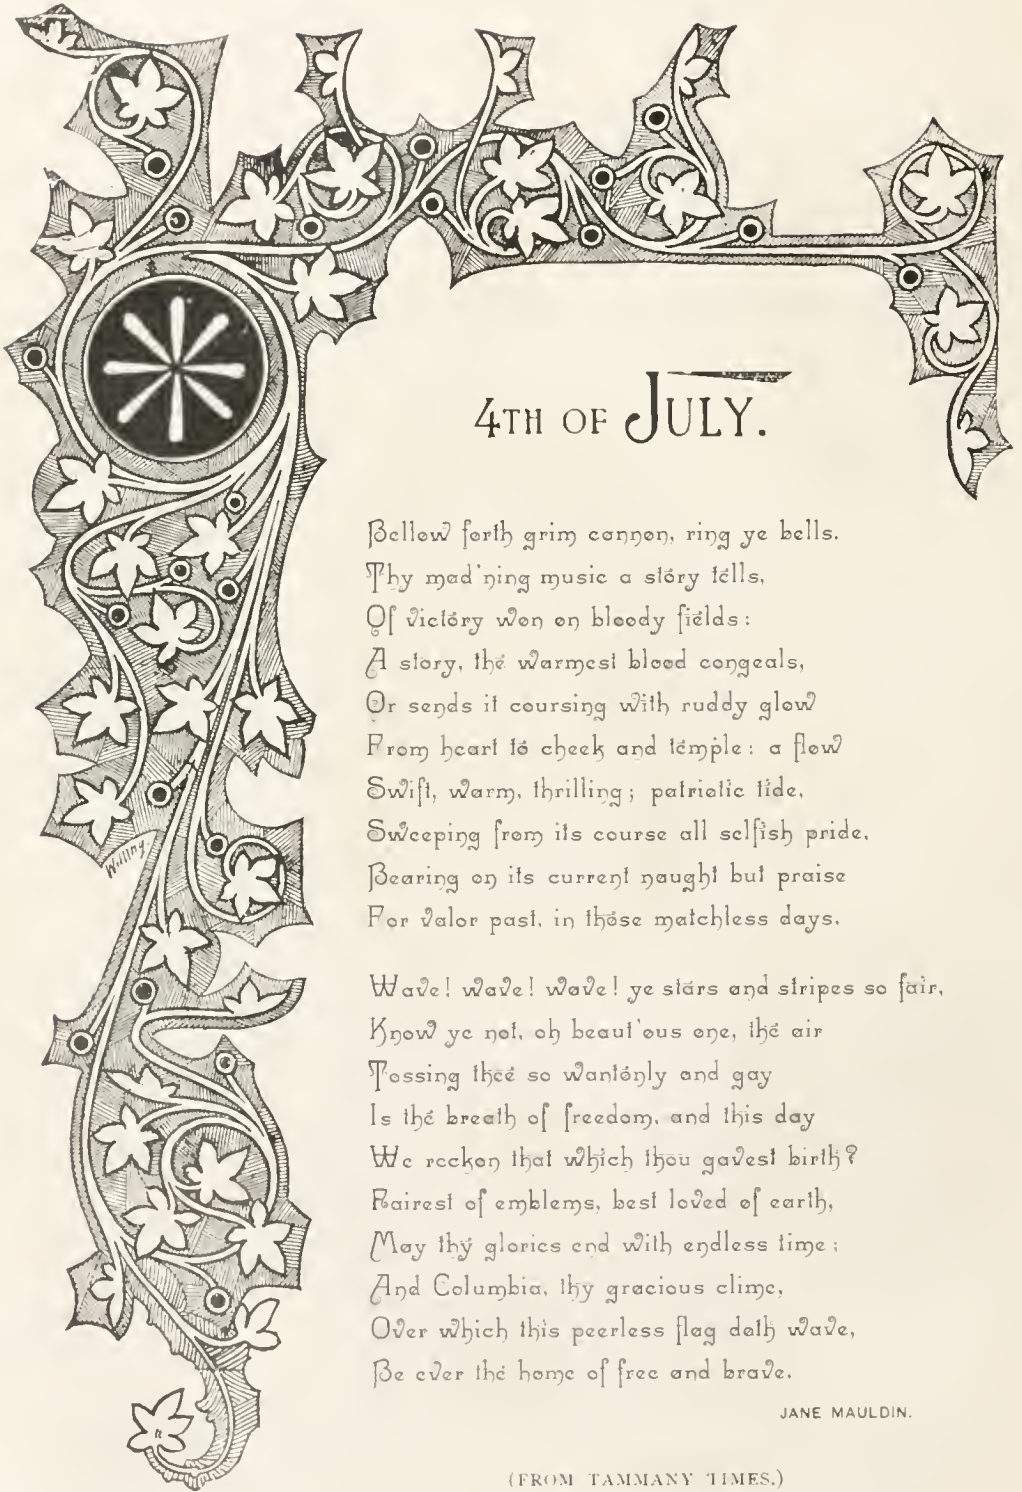 4TH OF JULY.
Bellow forth grim cannon, ring ye bells.
Thy mad'ning music a story tells,
Of victory won on bloody fields:
A story, the warmest blood congeals,
Or sends it coursing with ruddy glow
From heart to cheek and temple: a flow
Swift, warm, thrilling; patriotic tide,
Sweeping from its course all selfish pride,
Bearing on its current naught but praise
For valor past, in those matchless days.
Wave! wave! wave! ye stars and stripes so fair,
Know ye not, oh beaut'ous one, the air
Tossing thee so wantonly and gay
Is the breath of freedom, and this day
We reckon that which thou gavest birth?
Fairest of emblems, best loved of earth,
May thy glories end with endless time;
And Columbia, thy gracious clime,
Over which this peerless flag doth wave,
Be ever the home of free and brave.
JANE MAULDIN.
(FROM TAMMANY TIMES.)
Willing.